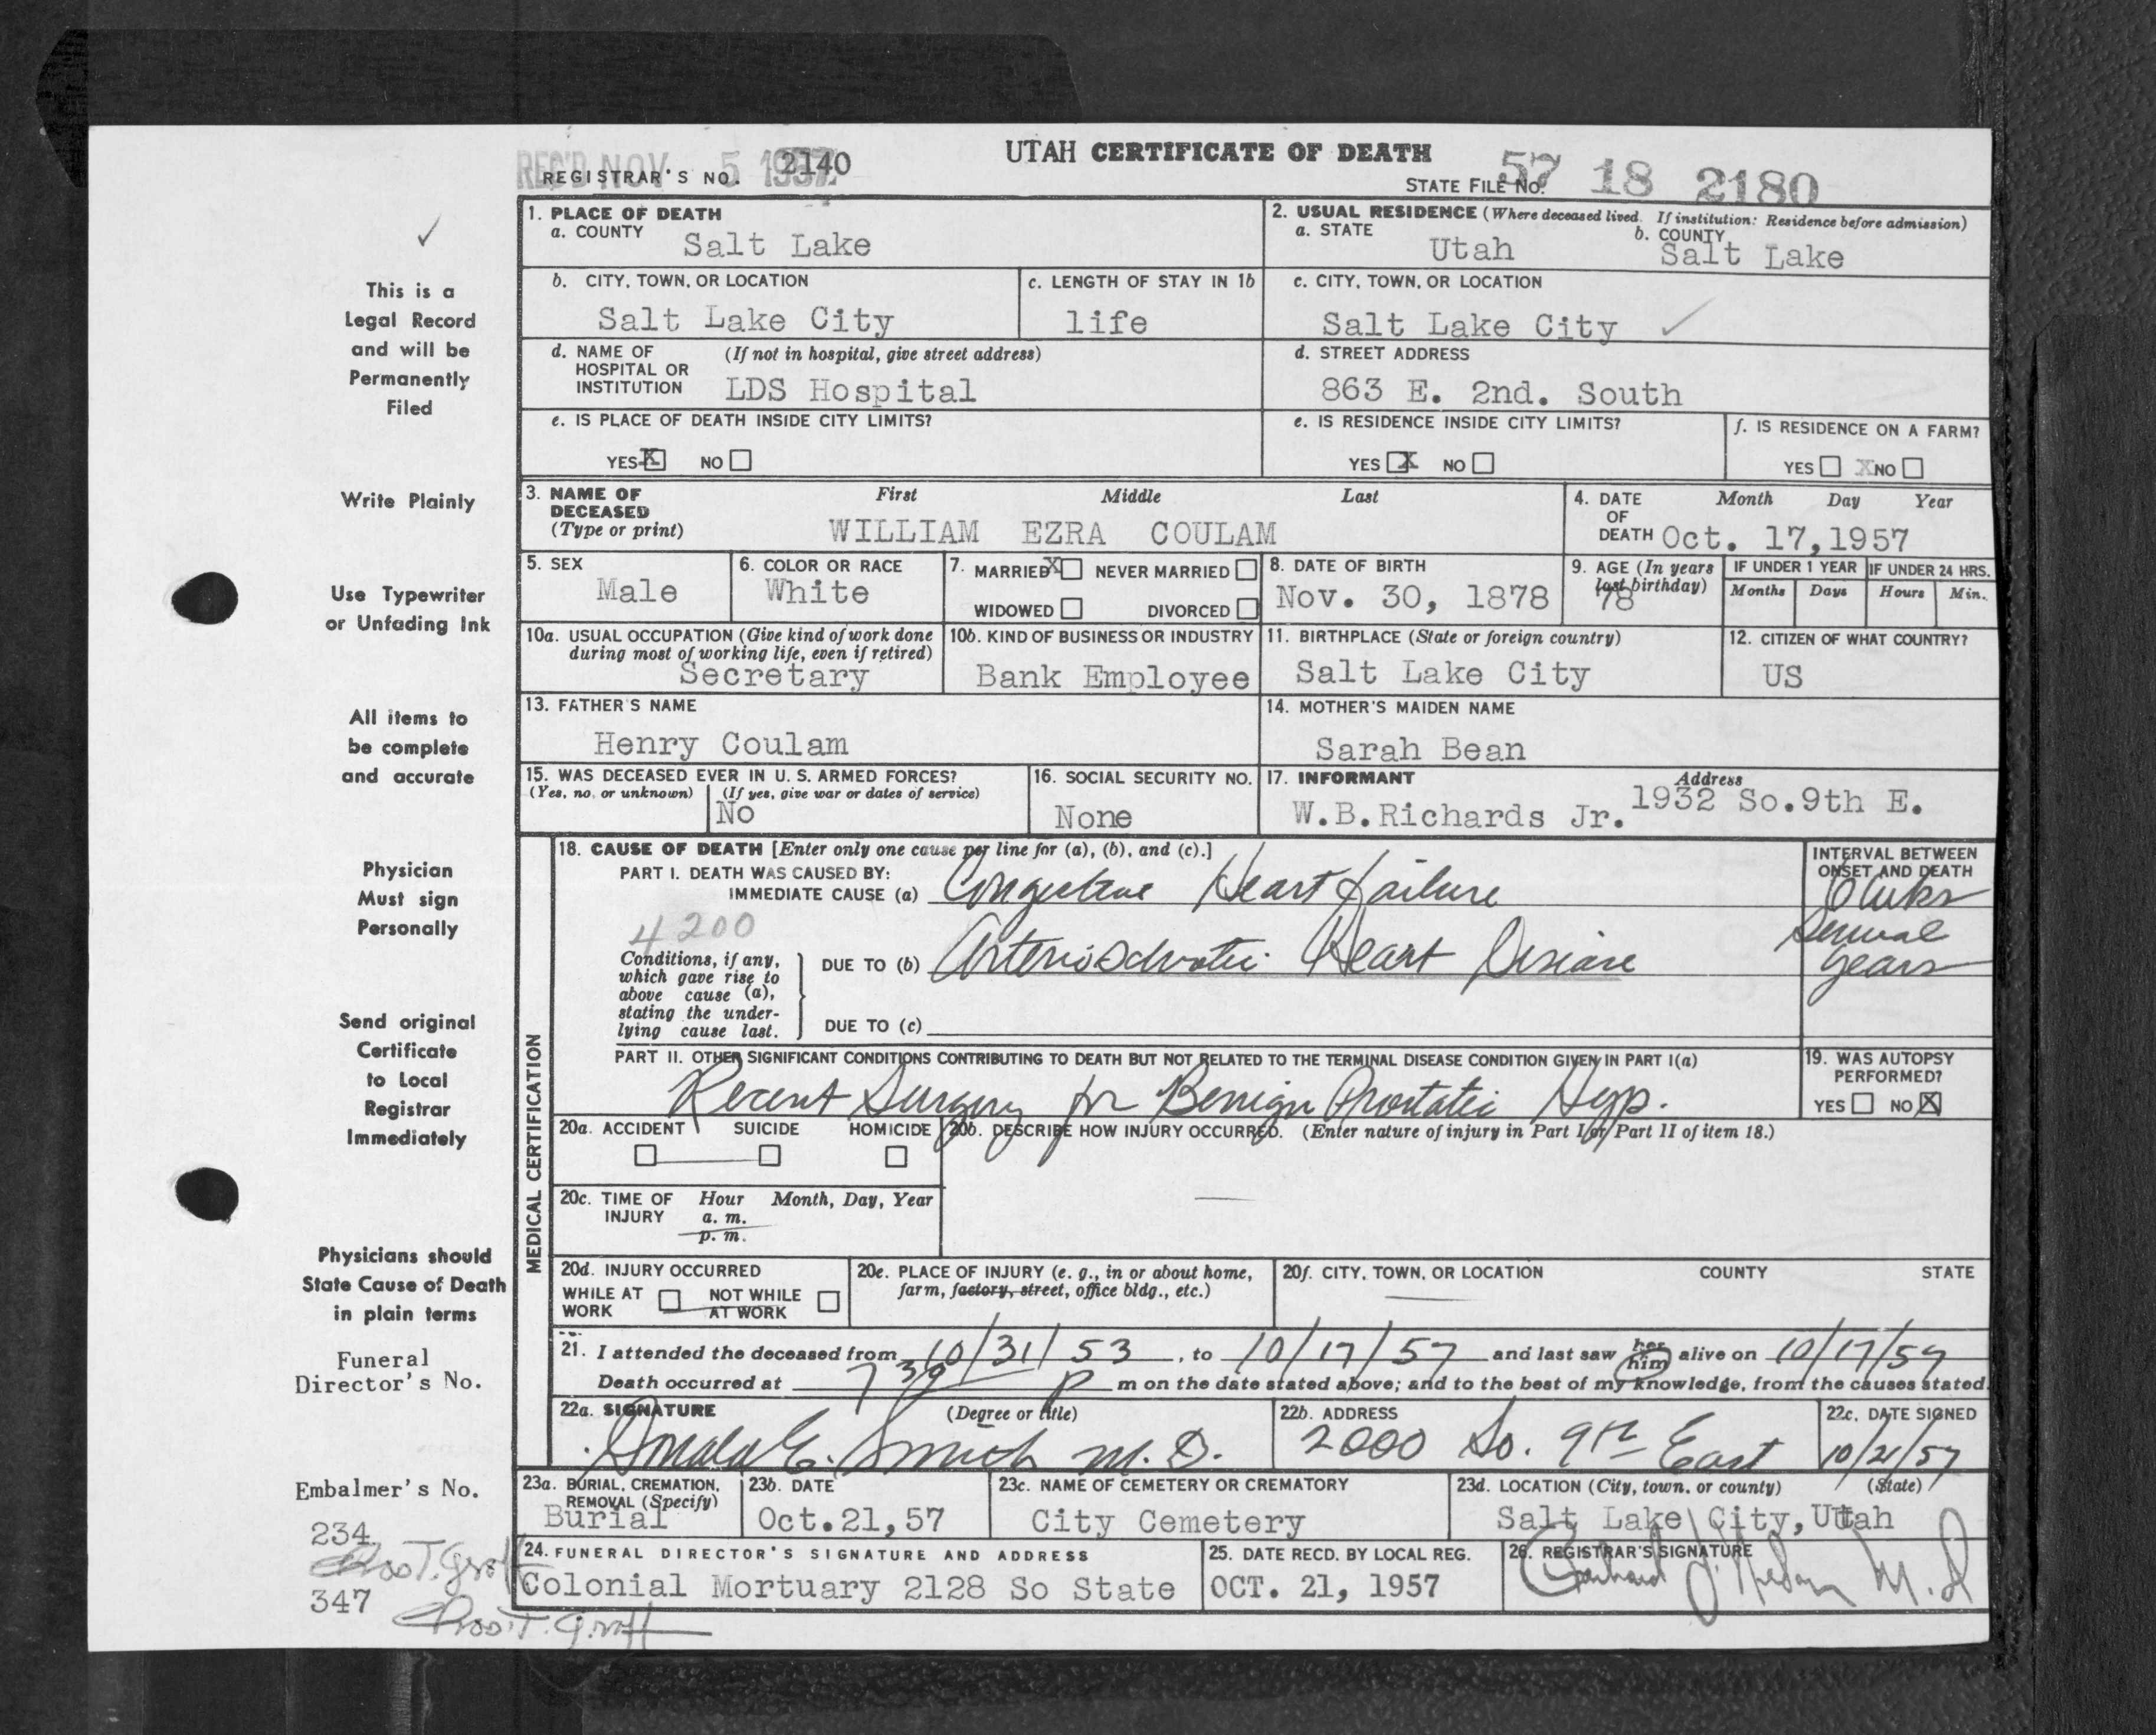 REC'D NOV 5 1957
2140
REGISTRAR'S NO.
UTAH CERTIFICATE OF DEATH
STATE FILE NO. 57 18 2180
1. PLACE OF DEATH
a. COUNTY
Salt Lake
2. USUAL RESIDENCE (Where deceased lived. If institution: Residence before admission)
a. STATE
Utah
b. COUNTY
Salt Lake
b. CITY, TOWN, OR LOCATION
Salt Lake City
c. LENGTH OF STAY IN 1b
life
c. CITY, TOWN, OR LOCATION
Salt Lake City
d. NAME OF HOSPITAL OR INSTITUTION (If not in hospital, give street address)
LDS Hospital
d. STREET ADDRESS
863 E. 2nd. South
e. IS PLACE OF DEATH INSIDE CITY LIMITS?
YES X NO
e. IS RESIDENCE INSIDE CITY LIMITS?
YES X NO
f. IS RESIDENCE ON A FARM?
YES X NO
3. NAME OF DECEASED (Type or print)
First Middle Last
WILLIAM EZRA COULAM
4. DATE OF DEATH
Month Day Year
Oct. 17,1957
5. SEX
Male
6. COLOR OR RACE
White
7. MARRIED X NEVER MARRIED
WIDOWED DIVORCED
8. DATE OF BIRTH
Nov. 30, 1878
9. AGE (In years last birthday)
78
IF UNDER 1 YEAR
Months Days
IF UNDER 24 HRS.
Hours Min.
10a. USUAL OCCUPATION (Give kind of work done during most of working life, even if retired)
Secretary
10b. KIND OF BUSINESS OR INDUSTRY
Bank Employee
11. BIRTHPLACE (State or foreign country)
Salt Lake City
12. CITIZEN OF WHAT COUNTRY?
US
13. FATHER'S NAME
Henry Coulam
14. MOTHER'S MAIDEN NAME
Sarah Bean
15. WAS DECEASED EVER IN U. S. ARMED FORCES?
(Yes, no, or unknown) (If yes, give war or dates of service)
No
16. SOCIAL SECURITY NO.
None
17. INFORMANT Address
W.B.Richards Jr. 1932 So.9th E.
MEDICAL CERTIFICATION
18. CAUSE OF DEATH [Enter only one cause per line for (a), (b), and (c).]
PART I. DEATH WAS CAUSED BY:
IMMEDIATE CAUSE (a) Congestive Heart Failure
INTERVAL BETWEEN ONSET AND DEATH
4200
Conditions, if any, which gave rise to above cause (a), stating the underlying cause last.
DUE TO (b) Arteriosclerotic Heart Disease
Several years
DUE TO (c)
PART II. OTHER SIGNIFICANT CONDITIONS CONTRIBUTING TO DEATH BUT NOT RELATED TO THE TERMINAL DISEASE CONDITION GIVEN IN PART I(a)
Recent Surgery for Benign Prostatic Hyp.
19. WAS AUTOPSY PERFORMED?
YES NO X
20a. ACCIDENT SUICIDE HOMICIDE
20b. DESCRIBE HOW INJURY OCCURRED. (Enter nature of injury in Part I or Part II of item 18.)
20c. TIME OF INJURY Hour Month, Day, Year
a. m.
p. m.
20d. INJURY OCCURRED
WHILE AT WORK NOT WHILE AT WORK
20e. PLACE OF INJURY (e. g., in or about home, farm, factory, street, office bldg., etc.)
20f. CITY, TOWN, OR LOCATION COUNTY STATE
21. I attended the deceased from 10/31/53, to 10/17/57 and last saw her him alive on 10/17/57
Death occurred at 7 30 P m on the date stated above; and to the best of my knowledge, from the causes stated.
22a. SIGNATURE (Degree or title)
Donald E. Smith M.D.
22b. ADDRESS
2000 So. 9th East
22c. DATE SIGNED
10/21/57
23a. BURIAL, CREMATION, REMOVAL (Specify)
Burial
23b. DATE
Oct.21,57
23c. NAME OF CEMETERY OR CREMATORY
City Cemetery
23d. LOCATION (City, town, or county) (State)
Salt Lake City, Utah
24. FUNERAL DIRECTOR'S SIGNATURE AND ADDRESS
Colonial Mortuary 2128 So State
25. DATE RECD. BY LOCAL REG.
OCT. 21, 1957
26. REGISTRAR'S SIGNATURE
M.D
This is a
Legal Record
and will be
Permanently
Filed
Write Plainly
Use Typewriter
or Unfading Ink
All items to
be complete
and accurate
Physician
Must sign
Personally
Send original
Certificate
to Local
Registrar
Immediately
Physicians should
State Cause of Death
in plain terms
Funeral
Director's No.
Embalmer's No.
234
347